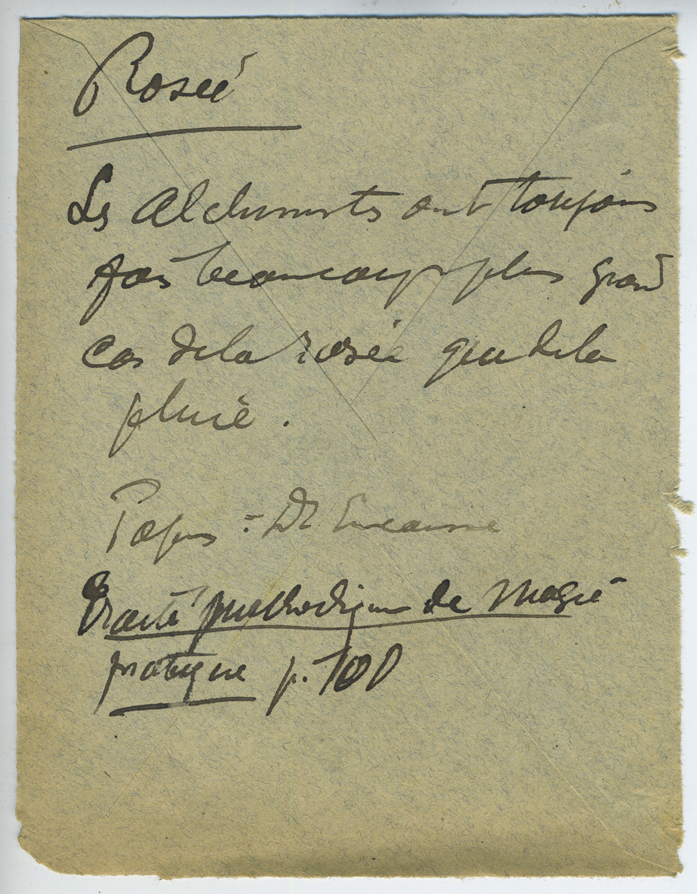 Rosée
Les Alchimistes ont toujours
fait beaucoup plus grand
cas de la rosée que de la
pluie.
Papus = Dr Encausse
Traité méthodique de Magie
pratique p. 100